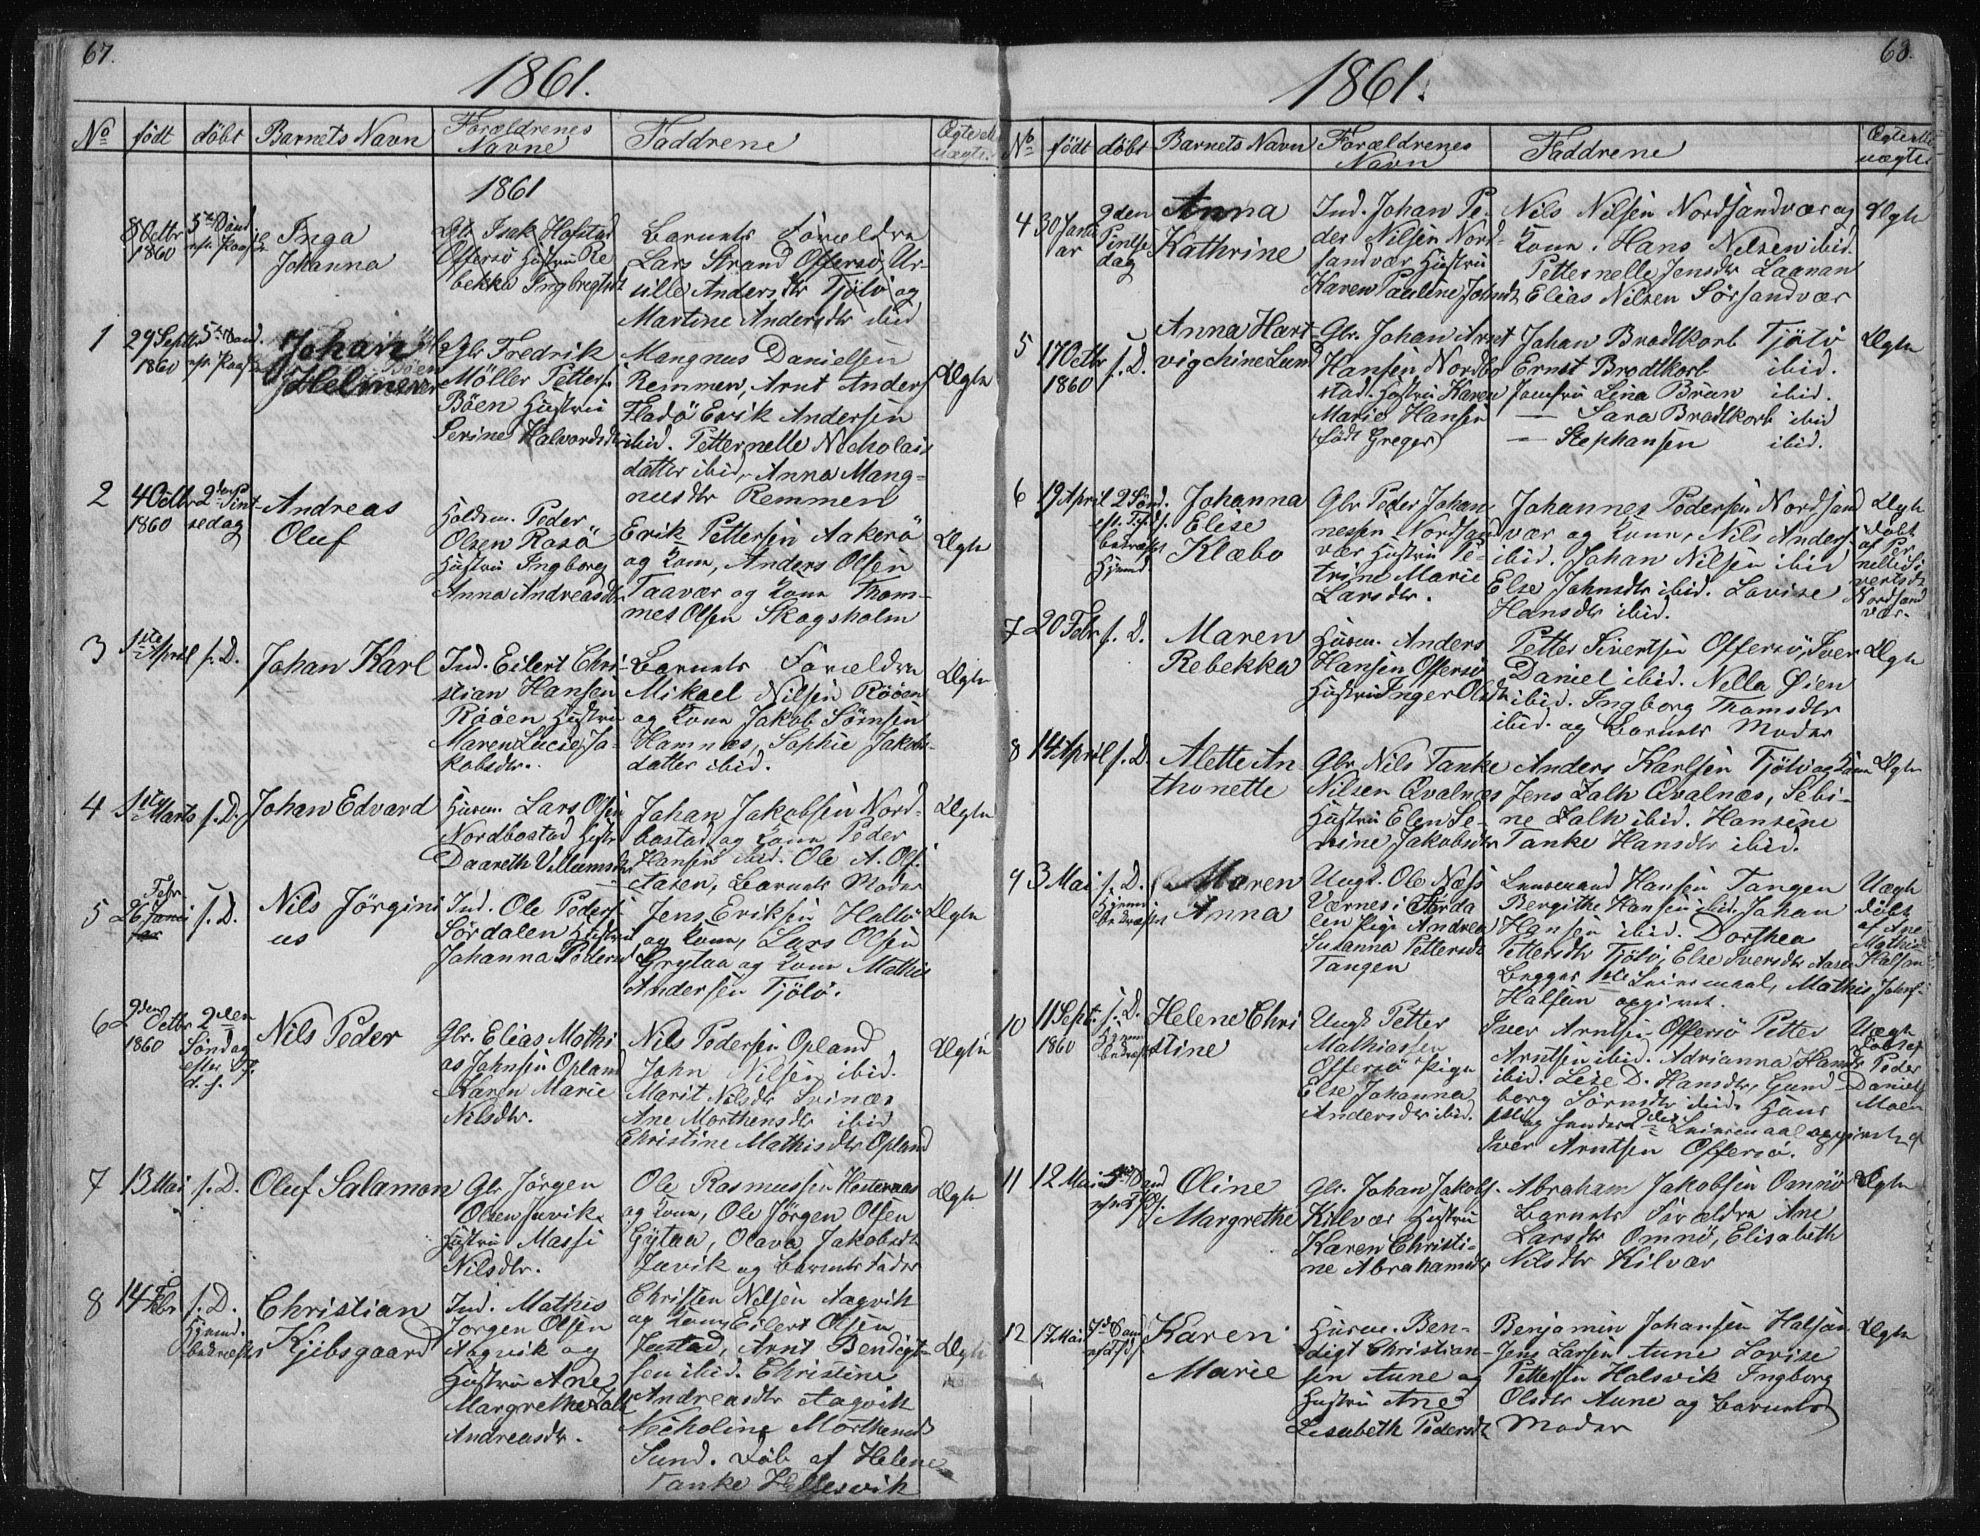 67.
1861.
No født döbt Barnets Navn Forældrenes Navne Faddrene Ægte el. uægte
1861
8 Octbr 1860
5te Sönd. eft. Paaske
Inga
Johanna
Isak Hofstad
Offersö Hustru Re-
bekka Ingbrigtsdt
Barnets Forældre
Lars Strand Offersö, Ur-
sille Andersdtr Tjötö og
Martine Andersdtr ibid
1
29 Septbr 1860
5te Sönd. eft. Paaske
Johan
Helmer
Gbr. Fredrik
Möller Petters.
Böen Hustru
Serine Halvordsdtr
Mangnus Danielsen
Remmen, Arnt Anders
Fladö Erik Andersen
ibid. Petternelle Necholais
datter ibid, Anna Mang-
nusdtr Remmen
Ægte
2
4 Octbr 1860
2den Pint-
sedag
Andreas
Oluf
Holdsm. Peder
Olsen Rosö
Hustru Ingborg
Anna Andreasdtr
Erik Pettersen Aakerö
og Kone, Anders Olsen
Taavær og Kone Thom-
mes Olsen Skogsholm
Ægte
3
1ste April
s. D.
Johan Karl
Ind. Eilert Chri-
stian Hansen
Rööen Hustru
Maren Lucie Ja-
kobsdtr.
Barnets Forældre
Mikael Nilsen Rööen
og Kone Jakob Sörnsen
Hamnæs, Sophie Jakobs-
datter ibid.
Ægte
4
1ste Marts
s. D.
Johan Edvard
Husm. Lars Olsen
Nordbostad Hustr
Daareth Villumsdtr
Johan Jakobsen Nord-
bostad og Kone Peder
Hansen ibid. Ole A. Ols.
Aasen, Barnets Moder
Ægte
5
26 Febr
s. D.
Nils Jörgini
us
Ind. Ole Peders.
Sördalen Hustru
Johanna Pedersd
Jens Eriksen Haltö
og Kone, Lars Olsen
Grytaa og Kone Mathis
Andersen Tjötö.
Ægte
6
2den Octbr 1860
2den
Söndag
efter P.
d. s.
Nils Peder
Gbr. Elias Mathi
as Johnsen Opland
Karen Marie
Nilsdtr.
Nils Pedersen Opland
John Nilsen ibid.
Marit Nilsdtr Svinæs
Ane Morthensdtr ibid
Christine Mathisdtr Opland
Ægte
7
13 Mai
s. D.
Oluf Salamon
Gbr Jörgen
Olsen Juvik
Hustru Massi
Nilsdtr.
Ole Rasmussen Hesternæs
og Kone, Ole Jörgen Olsen
Gytaa, Olava Jakobsdt
Juvik og Barnets Fader
Ægte
8
14 Febr
s. D.
Hjemd.
bekræftet
Christian
Kjibsgaard
Ind. Mathis
Jorgen Olsen
Aagvik og
Hustru Ane
Margrethe Zalk
Andreasdtr.
Christen Nilsen Aagvik
og Kone Eilert Olsen
Justad, Arnt Bendigt-
sen ibid. Christine
Andreasdtr Aagvik
Nicholine Morthensd
Sund. Döb af Helene
Tanke Helsesvik
Ægte
68.
1861.
No födt döbt Barnets Navn Forældrenes Navn Faddrene Ægte ell. uægte
4
30 Janu
ar
2den
Pintse
dag
Anna
Kathrine
Ind. Johan Pe-
der Nilsen Nord-
sandvær Hustru
Karen Pauline Johnsdt
Nils Nilsen Nordsandvær og
Kone. Hans Nelsen ibid.
Petternelle Jensdtr Laanan
Elias Nilsen Sörsandvær
Ægte
5
17 Octbr 1860
s. D.
Anna Hart
vigchine Lund
Gbr. Johan Arnt
Hansen Nordbo
stad. Hustru Karen
Marie Hansen
(födt Greger)
Johan Brodtkorb Tjötö
Ernst Brodtkorb ibid.
Jomfru Lina Brun ibid.
— Sara Brodtkorb ibid
— Stephansen ibid.
Ægte
6
19 April
2 Sönd.
bekræftet
Hjemd.
Johanna
Elise
Klæbo
Gbr Peder Johan
nessen Nordsand
vær Hustru Pe-
trine Marie
Larsdtr.
Johannes Pedersen Nordsand
vær og Kone, Nils Anders.
ibid. Johan Nilsen ibid
Else Johnsdtr ibid. Lovise
Hansdtr ibid.
Ægte
döbt
af Per
nelle Si
vertsdt
Nordsand
vær.
7
20 Febr
s. D.
Maren
Rebekka
Husm. Anders
Hansen Offersö
Hustru Inger Olsdt
Petter Sivertsen Offersö, Iver
Daniel ibid. Nella Øien
ibid. Ingborg Thomsdtr
ibid. og Barnets Moder
Ægte
8
14 April
s. D.
Alette An
thonette
Gbr. Nils Tanke
Nilsen Qvalnæs
Hustru Elen Se-
rine Jakobsdtr
Anders Karlsen Tjötö og Kone
Jens Zalk Qvalnæs, Sebi-
ne Zalk ibid. Hansene
Tanke Hansdtr ibid.
Ægte
9
3 Mai
s. D.
Hjemm
bekræftet
Maren
Anna
Ungk. Ole Næss
Værnes i Størda
len Pige Andrea
Susanna Pettersdt
Tangen
Hansen Tangen
Bergithe Hansen ibid. Johan
Hansen ibid. Dorthea
Pettersdtr Tjötö, Else Iversdtr Aasen
Begges 1ste Leiermaal, Mathis Johns.
Halsan opgivet.
Uægte
döbt
af Ane
Mathisdt
Halsan
10
11 Septr 1860
s. D.
Hjemm
bekræftet
Helene Chri
stine
Ungk Petter
Mathiassen
Offersö Pige
Else Johanna
Andersdtr ibid.
Iver Arntsen Offersö Petter
Arntsen ibid. Adrianna Hansdtr
ibid. Lise D. Hansdtr, Gund-
borg Sörnsdtr ibid. Hans
1ste og hendes 2det Leiermaal opgivet af
Iver Arntsen Offersö.
Uægte
Döbt af
Peder
Daniels
Moen
11
12 Mai
Oline
Margrethe
Gbr. Johan Jakobs.
Kilvær Hustru
Karen Christi-
ne Abrahamsdtr
Abraham Jakobsen Omnö
Barnets Forældre Ane
Larsdtr Omnö, Elisabeth
Nilsdtr Hilvær
Ægte
12
17 Mai
Karen
Marie
Husm. Ben-
digt Christian-
sen Aune og
Hustru Ane
Lisabeth Pedersdt
Benjamin Johansen Halsan
Jens Larsen Aune Lovise
Pettersen Halsvik Ingborg
Olsdtr Aune og Barnets
Moder
Ægte